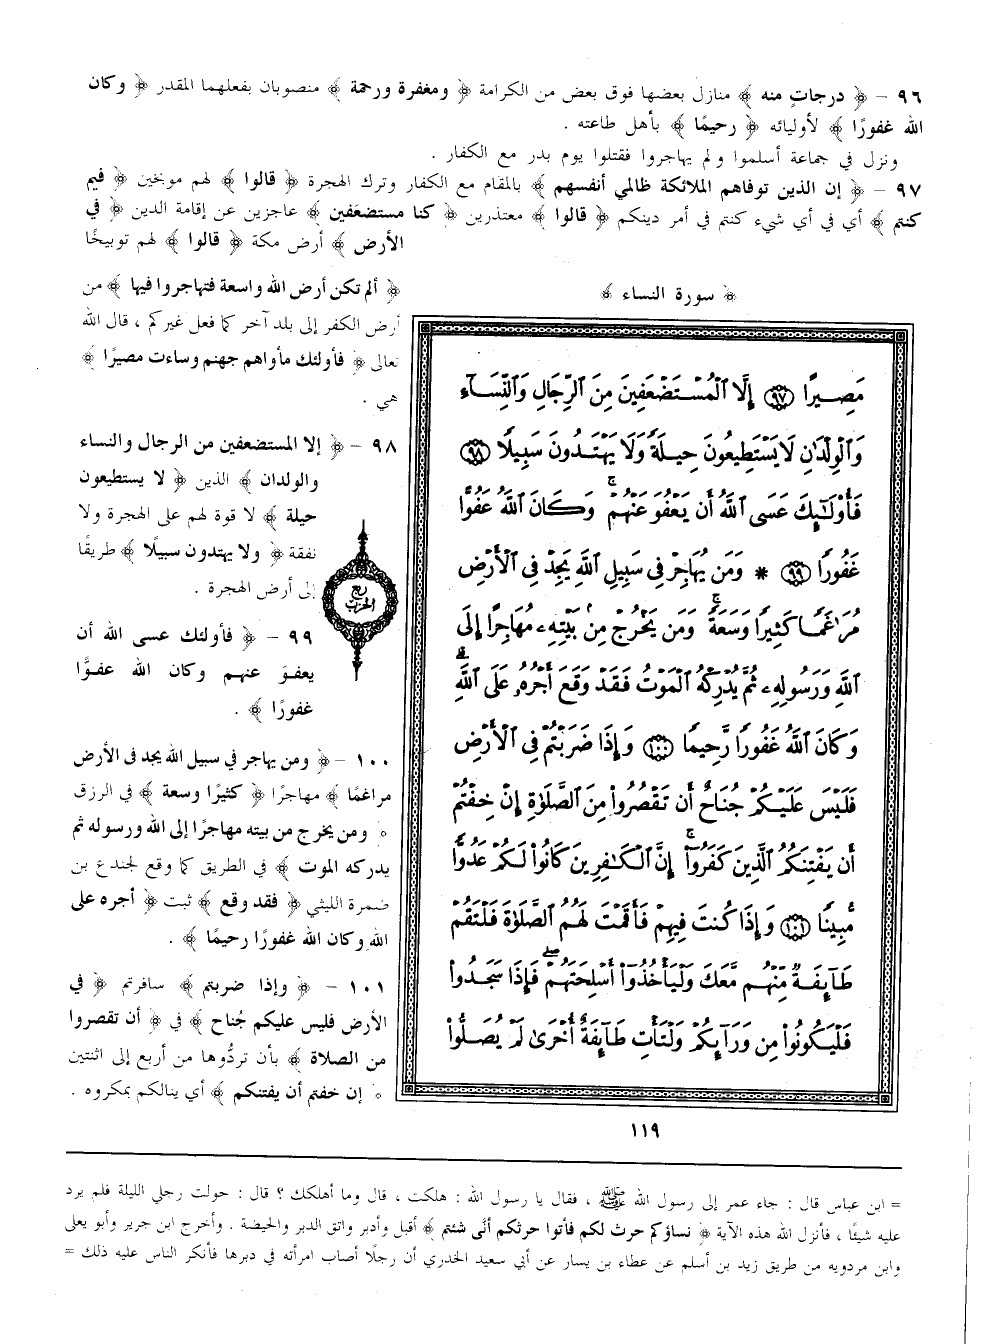 ٩٦ – ﴿ درجاتٍ منه ﴾ منازل بعضها فوق بعض من الكرامة ﴿ ومغفرة ورحمة ﴾ منصوبان بفعلهما المقدر ﴿ وكان
الله غفورًا ﴾ لأوليائه ﴿ رحيمًا ﴾ بأهل طاعته .
ونزل في جماعة أسلموا ولم يهاجروا فقتلوا يوم بدر مع الكفار .
٩٧ – ﴿ إن الذين توفاهم الملائكة ظالمي أنفسهم ﴾ بالمقام مع الكفار وترك الهجرة ﴿ قالوا ﴾ لهم موبخين ﴿ فيم
كنتم ﴾ أي في أي شيء كنتم في أمر دينكم ﴿ قالوا ﴾ معتذرين ﴿ كنا مستضعفين ﴾ عاجزين عن إقامة الدين ﴿ في
الأرض ﴾ أرض مكة ﴿ قالوا ﴾ لهم توبيخًا
﴿ ألم تكن أرض الله واسعة فتهاجروا فيها ﴾ من
أرض الكفر إلى بلد آخر كما فعل غيركم ، قال الله
تعالى ﴿ فأولئك مأواهم جهنم وساءت مصيرًا ﴾
هي .
٩٨ – ﴿ إلا المستضعفين من الرجال والنساء
والولدان ﴾ الذين ﴿ لا يستطيعون
حيلة ﴾ لا قوة لهم على الهجرة ولا
نفقة ﴿ ولا يهتدون سبيلًا ﴾ طريقًا
إلى أرض الهجرة .
٩٩ – ﴿ فأولئك عسى الله أن
يعفوَ عنهم وكان الله عفوًّا
غفورًا ﴾ .
١٠٠ – ﴿ ومن يهاجر في سبيل الله يجد في الأرض
مراغمًا ﴾ مهاجرًا ﴿ كثيرًا وسعة ﴾ في الرزق
﴿ ومن يخرج من بيته مهاجرًا إلى الله ورسوله ثم
يدركه الموت ﴾ في الطريق كما وقع لجندع بن
ضمرة الليثي ﴿ فقد وقع ﴾ ثبت ﴿ أجره على
الله وكان الله غفورًا رحيمًا ﴾ .
١٠١ – ﴿ وإذا ضربتم ﴾ سافرتم ﴿ في
الأرض فليس عليكم جُناح ﴾ في ﴿ أن تقصروا
من الصلاة ﴾ بأن تردُّوها من أربع إلى اثنتين
﴿ إن خفتم أن يفتنكم ﴾ أي ينالكم بمكروه .
﴿ سورة النساء ﴾
مَصِيرًا ٩٧ إِلَّا ٱلْمُسْتَضْعَفِينَ مِنَ ٱلرِّجَالِ وَٱلنِّسَآءِ
وَٱلْوِلْدَٰنِ لَا يَسْتَطِيعُونَ حِيلَةً وَلَا يَهْتَدُونَ سَبِيلًا ٩٨
فَأُو۟لَٰٓئِكَ عَسَى ٱللَّهُ أَن يَعْفُوَ عَنْهُمْ ۚ وَكَانَ ٱللَّهُ عَفُوًّا
غَفُورًا ٩٩ * وَمَن يُهَاجِرْ فِى سَبِيلِ ٱللَّهِ يَجِدْ فِى ٱلْأَرْضِ
مُرَٰغَمًا كَثِيرًا وَسَعَةً ۚ وَمَن يَخْرُجْ مِنۢ بَيْتِهِۦ مُهَاجِرًا إِلَى
ٱللَّهِ وَرَسُولِهِۦ ثُمَّ يُدْرِكْهُ ٱلْمَوْتُ فَقَدْ وَقَعَ أَجْرُهُۥ عَلَى ٱللَّهِ ۗ
وَكَانَ ٱللَّهُ غَفُورًا رَّحِيمًا ١٠٠ وَإِذَا ضَرَبْتُمْ فِى ٱلْأَرْضِ
فَلَيْسَ عَلَيْكُمْ جُنَاحٌ أَن تَقْصُرُوا۟ مِنَ ٱلصَّلَوٰةِ إِنْ خِفْتُمْ
أَن يَفْتِنَكُمُ ٱلَّذِينَ كَفَرُوٓا۟ ۚ إِنَّ ٱلْكَٰفِرِينَ كَانُوا۟ لَكُمْ عَدُوًّا
مُّبِينًا ١٠١ وَإِذَا كُنتَ فِيهِمْ فَأَقَمْتَ لَهُمُ ٱلصَّلَوٰةَ فَلْتَقُمْ
طَآئِفَةٌ مِّنْهُم مَّعَكَ وَلْيَأْخُذُوٓا۟ أَسْلِحَتَهُمْ ۖ فَإِذَا سَجَدُوا۟
فَلْيَكُونُوا۟ مِن وَرَآئِكُمْ وَلْتَأْتِ طَآئِفَةٌ أُخْرَىٰ لَمْ يُصَلُّوا۟
ربع
الحزب
١١٩
= ابن عباس قال : جاء عمر إلى رسول الله ﷺ ، فقال يا رسول الله : هلكت ، قال وما أهلكك ؟ قال : حولت رحلي الليلة فلم يرد
عليه شيئًا ، فأنزل الله هذه الآية ﴿ نساؤكم حرث لكم فأتوا حرثكم أنَّى شئتم ﴾ أقبل وأدبر واتق الدبر والحيضة . وأخرج ابن جرير وأبو يعلى
وابن مردويه من طريق زيد بن أسلم عن عطاء بن يسار عن أبي سعيد الخدري أن رجلًا أصاب امرأته في دبرها فأنكر الناس عليه ذلك =